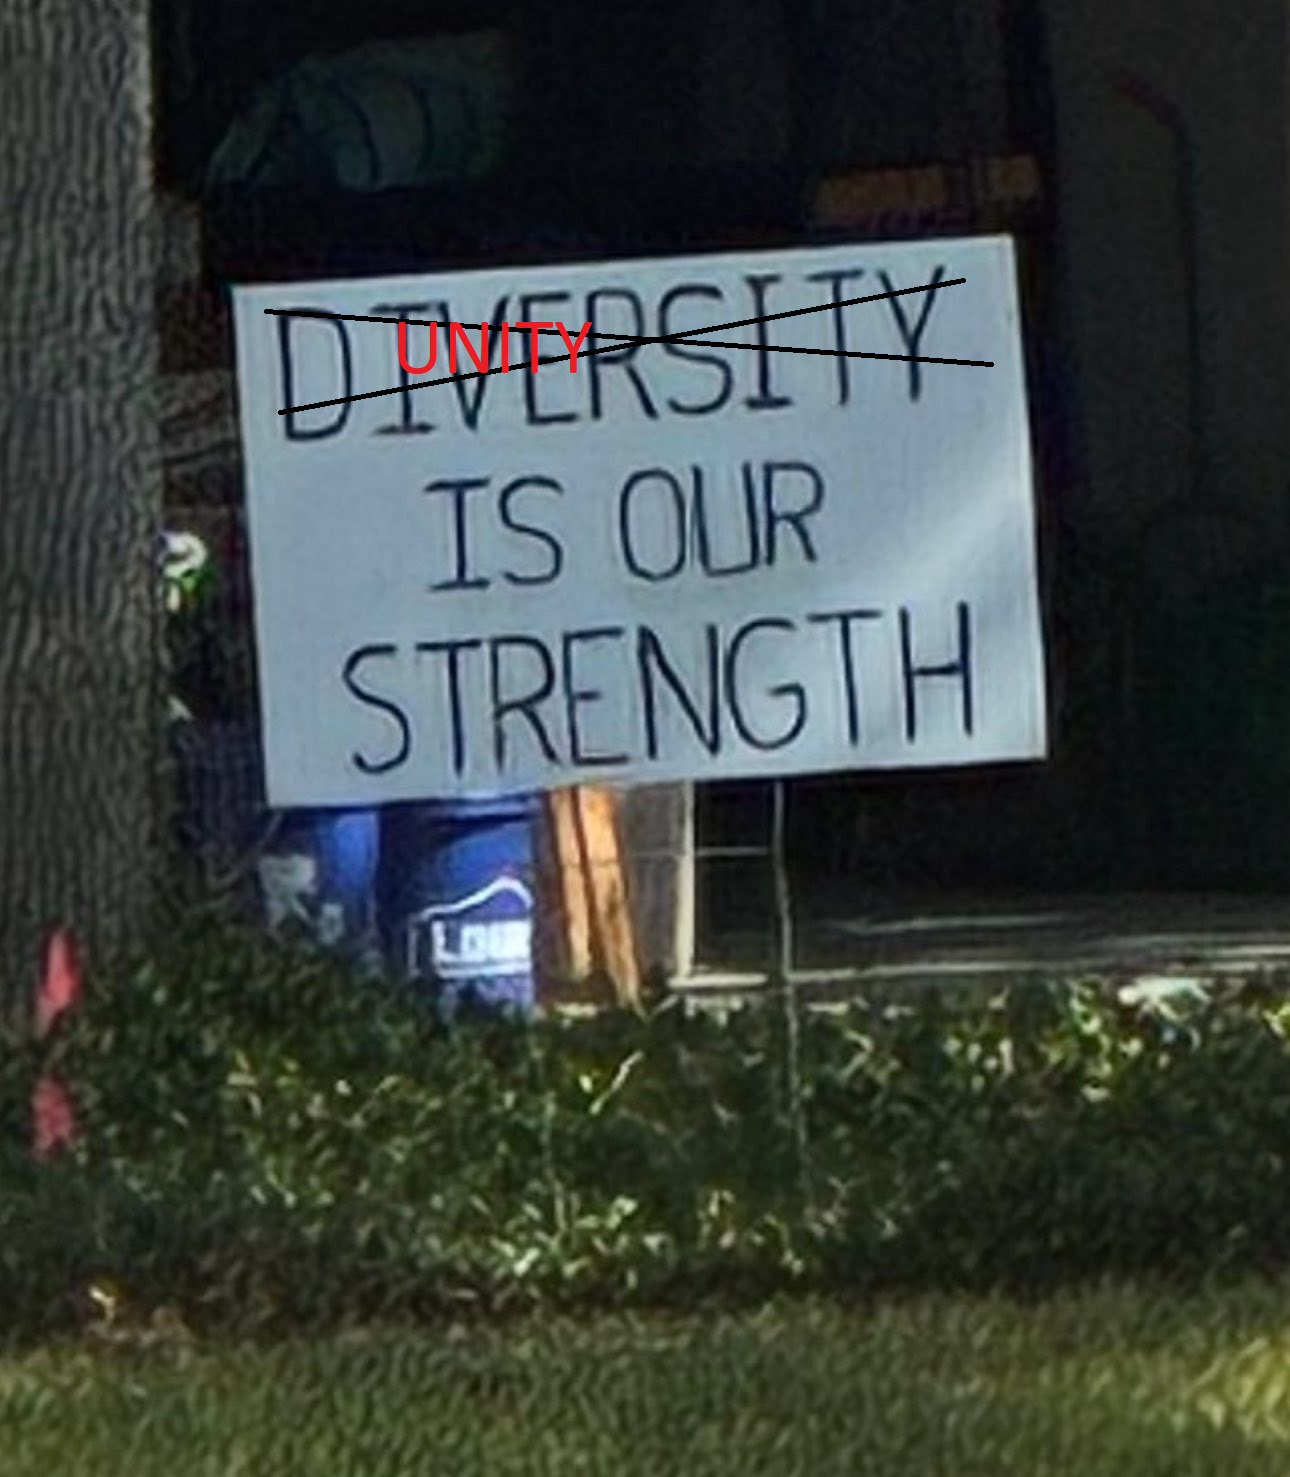 DIVERSITY
UNITY
IS OUR
STRENGTH